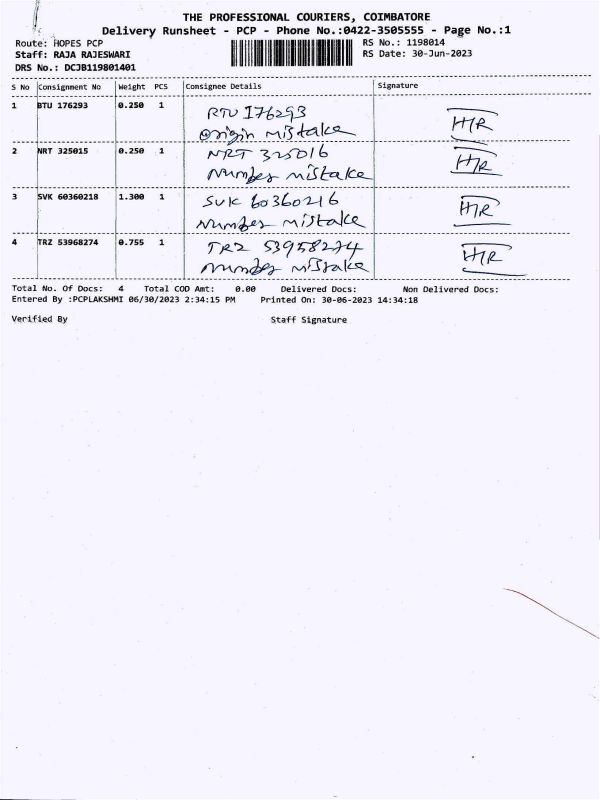 THE PROFESSIONAL COURIERS, COIMBATORE
Delivery Runsheet - PCP - Phone No.:0422-3505555 - Page No.:1
Route: HOPES PCP RS No.: 1198014
Staff: RAJA RAJESWARI RS Date: 30-Jun-2023
DRS No.: DCJB119801401
S No Consignment No Weight PCS Consignee Details Signature
1 BTU 176293 0.250 1 RTU 176293 H/R
Origin mistake
2 NRT 325015 0.250 1 NRT 325016 H/R
Number mistake
3 SVK 60360218 1.300 1 SVK 60360216 H/R
Number mistake
4 TRZ 53968274 0.755 1 TRZ 53958274 H/R
Number mistake
Total No. Of Docs: 4 Total COD Amt: 0.00 Delivered Docs: Non Delivered Docs:
Entered By :PCPLAKSHMI 06/30/2023 2:34:15 PM Printed On: 30-06-2023 14:34:18
Verified By Staff Signature